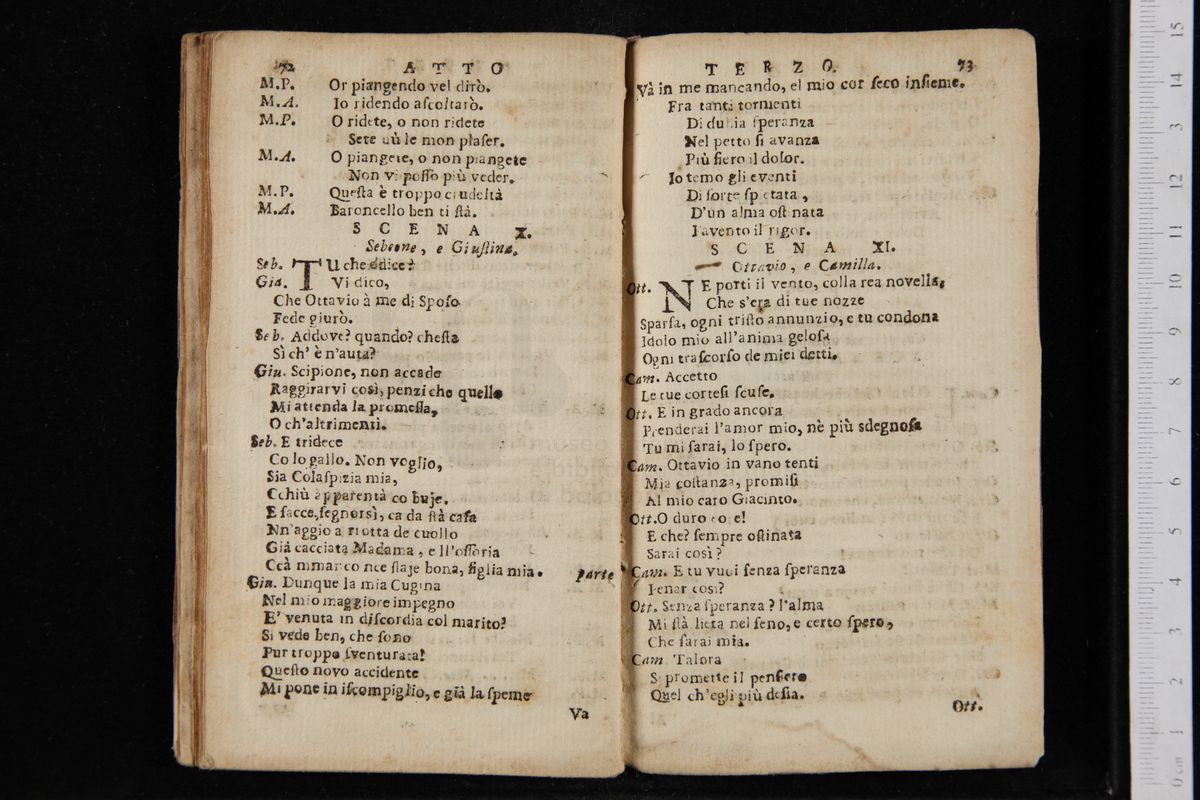 72 ATTO
M.P. Or piangendo vel dirò.
M.A. Io ridendo aſcoltarò.
M.P. O ridete, o non ridete
Sete uù le mon plaſer.
M.A. O piangete, o non piangete
Non vi poſſo più veder.
M.P. Queſta è troppo crudeltà
M.A. Baroncello ben ti ſtà.
SCENA X.
Sebeone, e Giuſtina.
Seb. TU che ddice?
Giu. Vi dico,
Che Ottavio à me di Spoſo
Fede giurò.
Seb. Addove? quando? cheſta
Sì ch' è n'auta?
Giu. Scipione, non accade
Raggirarvi così, penzi che quello
Mi attenda la promeſſa,
O ch'altrimenti.
Seb. E tridece
Co lo gallo. Non voglio,
Sia Colaſpizia mia,
Cchiù apparentà co buje.
E ſacce, ſegnorsì, ca da ſtà caſa
Nn'aggio a riotta de cuollo
Già cacciata Madama, e ll'oſſoria
Ccà mmarco nce ſtaje bona, figlia mia. parte
Giu. Dunque la mia Cugina
Nel mio maggiore impegno
E' venuta in diſcordia col marito?
Si vede ben, che ſono
Pur troppo ſventurata!
Queſto novo accidente
Mi pone in iſcompiglio, e già la ſpeme
Va
TERZO. 73
Và in me mancando, el mio cor ſeco inſieme.
Fra tanti tormenti
Di dubia ſperanza
Nel petto ſi avanza
Più fiero il dolor.
Io temo gli eventi
Di ſorte ſpietata,
D'un alma oſtinata
Pavento il rigor.
SCENA XI.
Ottavio, e Camilla.
Ott. NE porti il vento, colla rea novella,
Che s'era di tue nozze
Sparſa, ogni triſto annunzio, e tu condona
Idolo mio all'anima geloſa
Ogni traſcorſo de miei detti.
Cam. Accetto
Le tue corteſi ſcuſe.
Ott. E in grado ancora
Prenderai l'amor mio, nè più sdegnoſa
Tu mi ſarai, lo ſpero.
Cam. Ottavio in vano tenti
Mia coſtanza, promiſi
Al mio caro Giacinto.
Ott. O duro core!
E che? ſempre oſtinata
Sarai così?
Cam. E tu vuoi ſenza ſperanza
Penar così?
Ott. Senza ſperanza? l'alma
Mi ſtà lieta nel ſeno, e certo ſpero,
Che ſarai mia.
Cam. Talora
Si promette il penſiero
Quel ch'egli più deſia.
Ott.